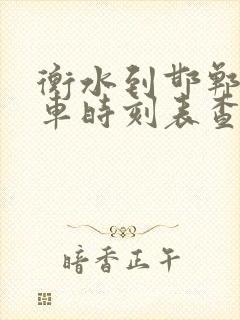 衡水到邯郸
车时刻表查
暗香正午